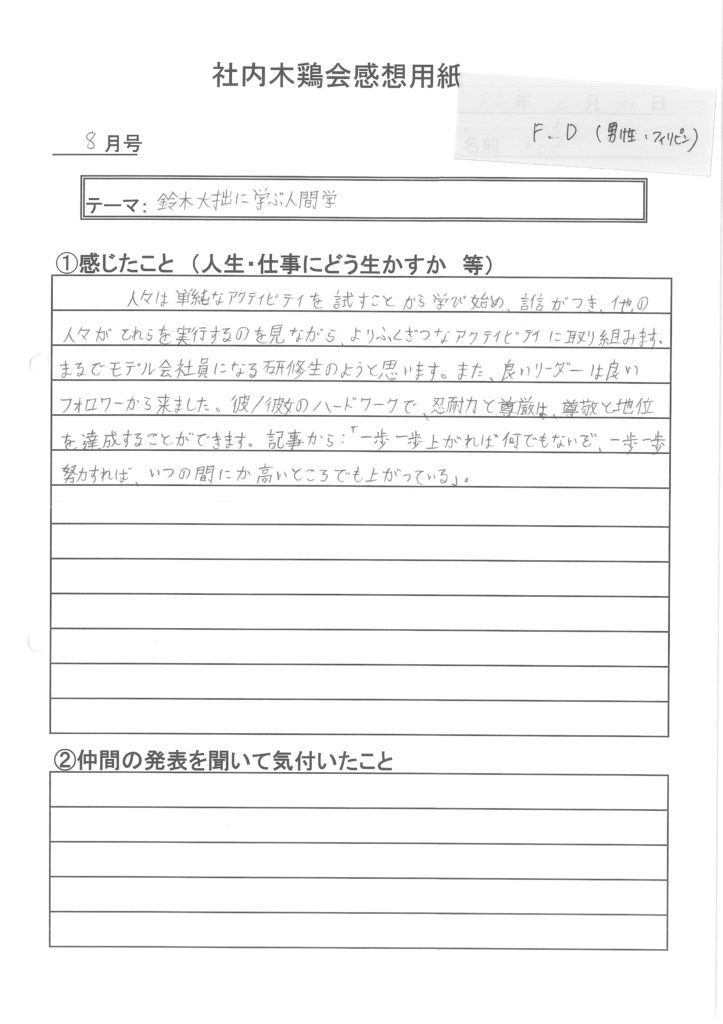 社内木鶏会感想用紙
年 月 日
F.D (男性・フィリピン)
名前
8月号
テーマ: 鈴木大拙に学ぶ人間学
①感じたこと (人生・仕事にどう生かすか 等)
人々は単純なアクティビティを試すことから学び始め、自信がつき、他の
人々がそれらを実行するのを見ながら、よりふくざつなアクティビティに取り組みます。
まるでモデル会社員になる研修生のようと思います。また、良いリーダーは良い
フォロワーから来ました。彼/彼女のハードワークで、忍耐力と尊厳は、尊敬と地位
を達成することができます。記事から:「一歩一歩上がれば何でもないぞ、一歩一歩
努力すれば、いつの間にか高いところでも上がっている」。
②仲間の発表を聞いて気付いたこと